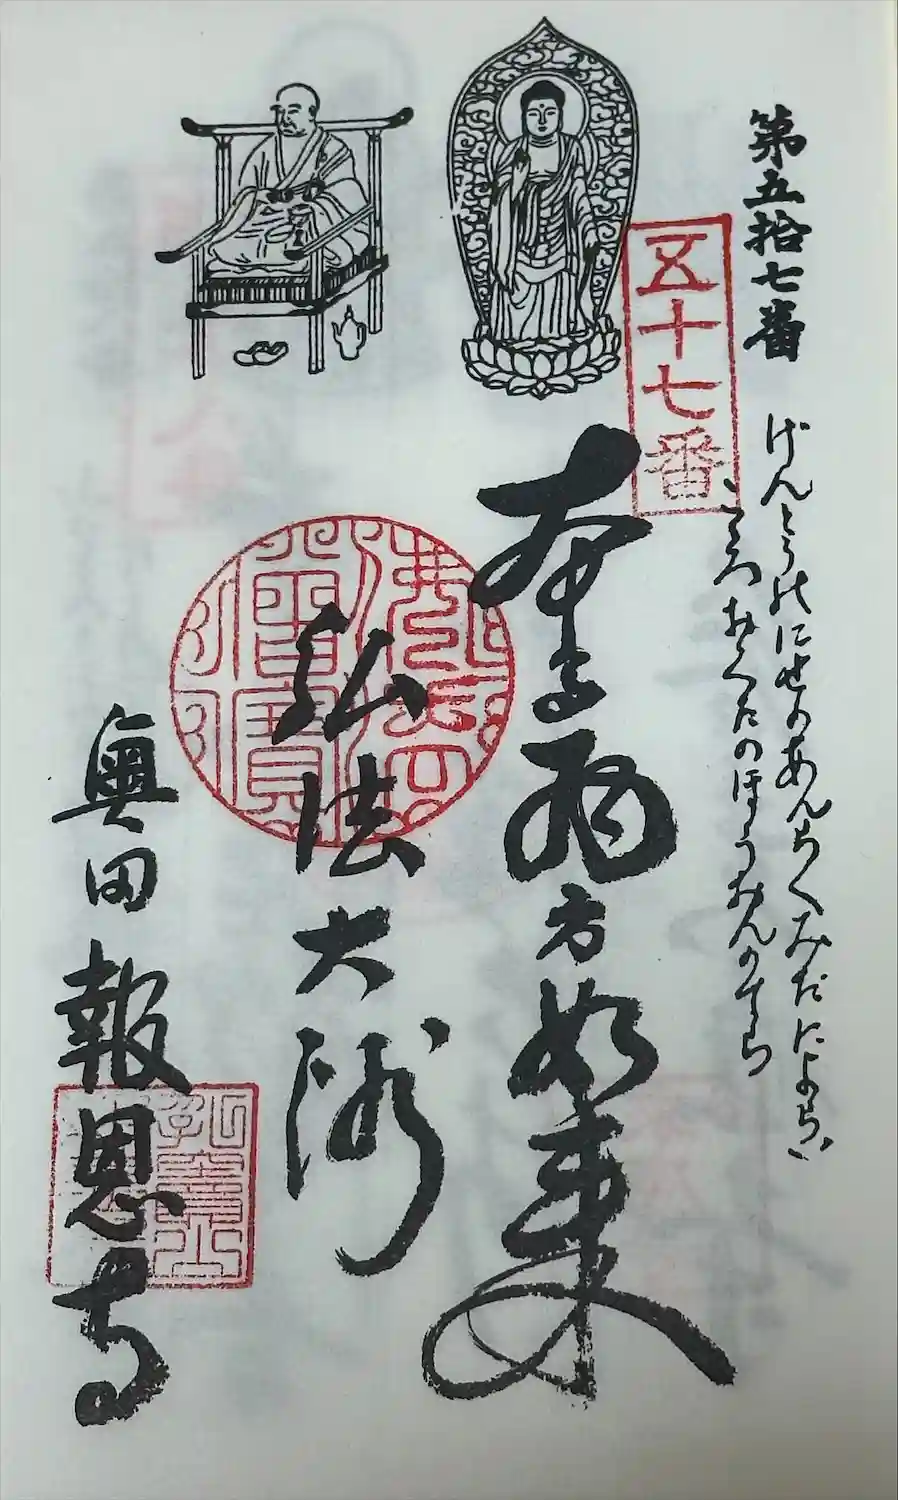 第五拾七番
五十七番
げんとうのにせのあんちくみだによらい
こころおくたのほうおんのてら
本尊両方如来
弘法大師
佛法僧寶
奥田
報恩寺